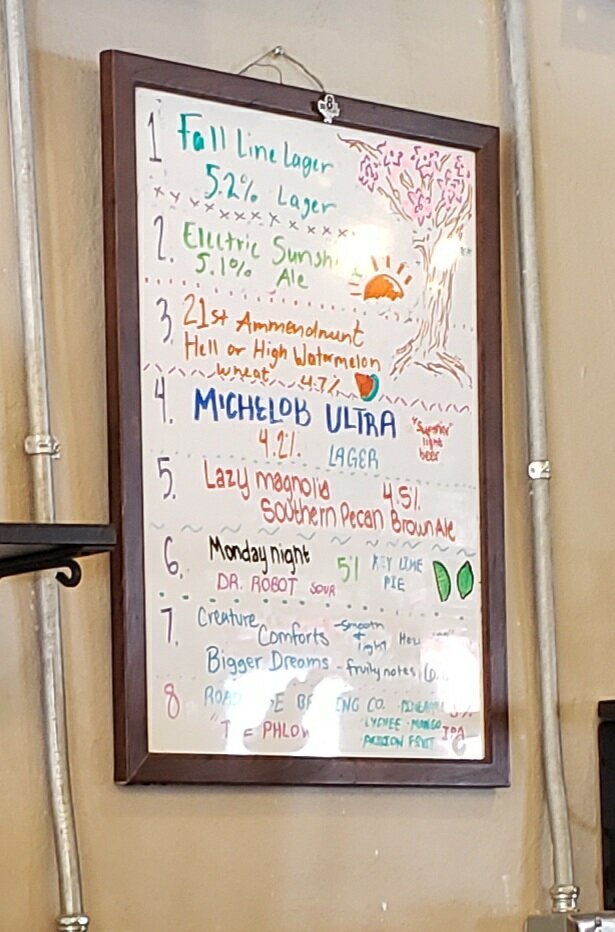 1 Fall Line Lager
5.2% Lager
2. Electric
5.1% Ale
3. 21st Ammendment
Hell or High Watermelon
Wheat 4.7%
4. MICHELOB ULTRA
4.2% LAGER
"Superior" light beer
5. Lazy magnolia 4.5%
Southern Pecan Brown Ale
6. Monday night 5% KEY LIME
DR. ROBOT SOUR PIE
7. Creature Comforts - smooth + light
Bigger Dreams - fruity notes
8 CO.
LYCHEE - MANGO IPA
PASSION FRUIT